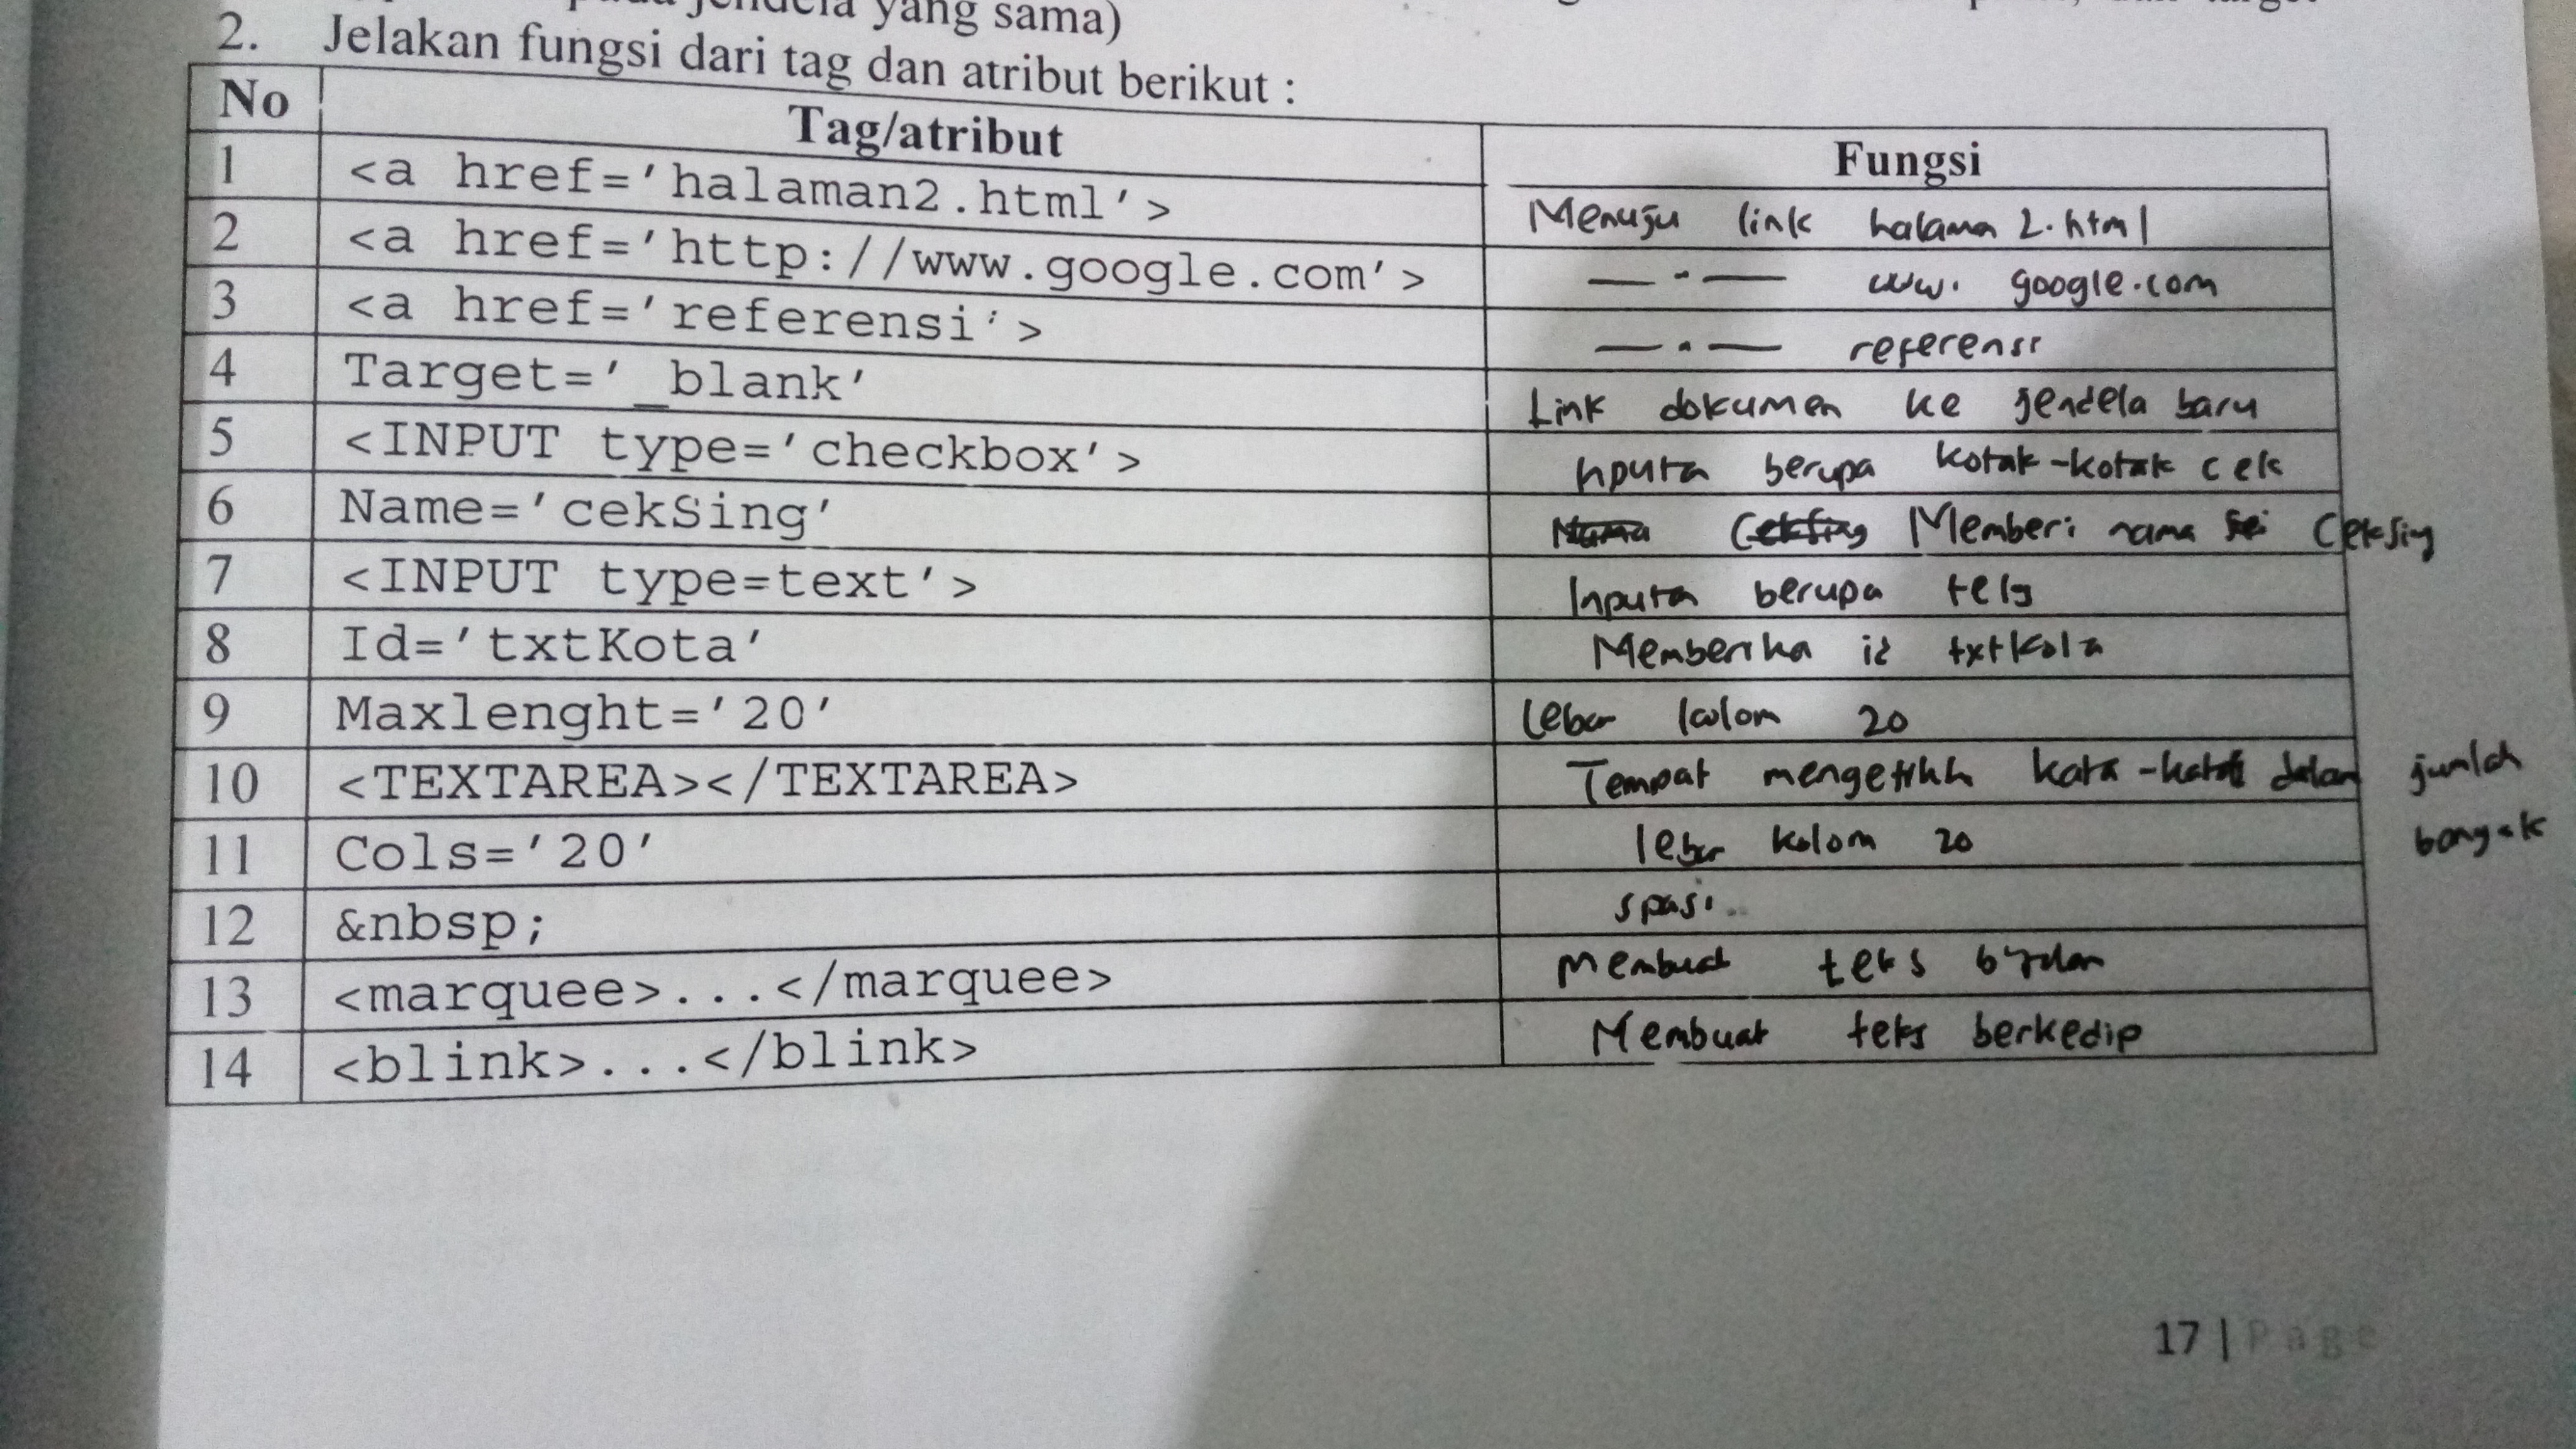 jendela yang sama)
2. Jelakan fungsi dari tag dan atribut berikut :
No Tag/atribut Fungsi
1 <a href='halaman2.html'> Menuju link halama 2.html
2 <a href='http://www.google.com'> — " — www. google.com
3 <a href='referensi'> — " — referensi
4 Target='_blank' Link dokumen ke jendela baru
5 <INPUT type='checkbox'> Inputa berupa kotak-kotak cek
6 Name='cekSing' Memberi nama CekSing
7 <INPUT type=text'> Inputa berupa teks
8 Id='txtKota' Memberika id txtKota
9 Maxlenght='20' Lebar kolom 20
10 <TEXTAREA></TEXTAREA> Tempat kata-kata dalam jumlah
banyak
11 Cols='20' lebar kolom 20
12 &nbsp; spasi
13 <marquee>...</marquee> Membuat teks
14 <blink>...</blink> Membuat teks berkedip
17 | Page